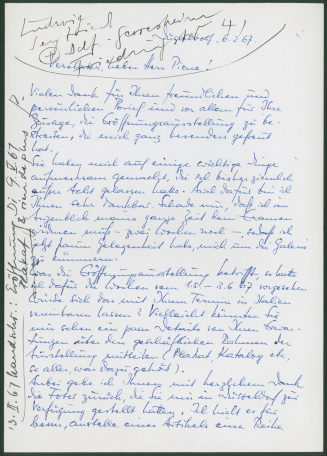 Ludwig
Düsseldorf, 6.2.67
Verehrter, lieber Herr Piene!
Vielen Dank für Ihren freundlichen und
persönlichen Brief und vor allem für Ihre
Zusage, die Eröffnungsausstellung zu be-
streiten, die mich ganz besonders gefreut
hat.
Sie haben mich auf einige wichtige Dinge
aufmerksam gemacht, die ich bisher ziemlich
außer Acht gelassen habe. Auch dafür bin ich
Ihnen sehr dankbar. Schade nur, daß ich im
Augenblick meine ganze Zeit dem Examen
widmen muß - zwei Wochen noch -, sodaß ich
jetzt kaum Gelegenheit habe, mich um die Galerie
zu kümmern.
Was die Eröffnungsausstellung betrifft, so hatte
ich dafür die Wochen vom 3.6.67 vorgesehen.
Würde sich das mit Ihren Terminen in Italien
vereinbaren lassen? Vielleicht könnten Sie
mir schon ein paar Details von Ihren Erwar-
tungen über den geschäftlichen Rahmen der
Ausstellung mitteilen (Plakat, Katalog etc.
so alles, was dazu gehört).
Anbei gebe ich Ihnen mit herzlichem Dank
die Fotos zurück, die Sie mir in Düsseldorf zur
Verfügung gestellt hatten. Ich hielt es für
besser, anstelle eines Artikels eine Reihe
13. II. 67 Eröffnung Di. 9. 67
Plakat